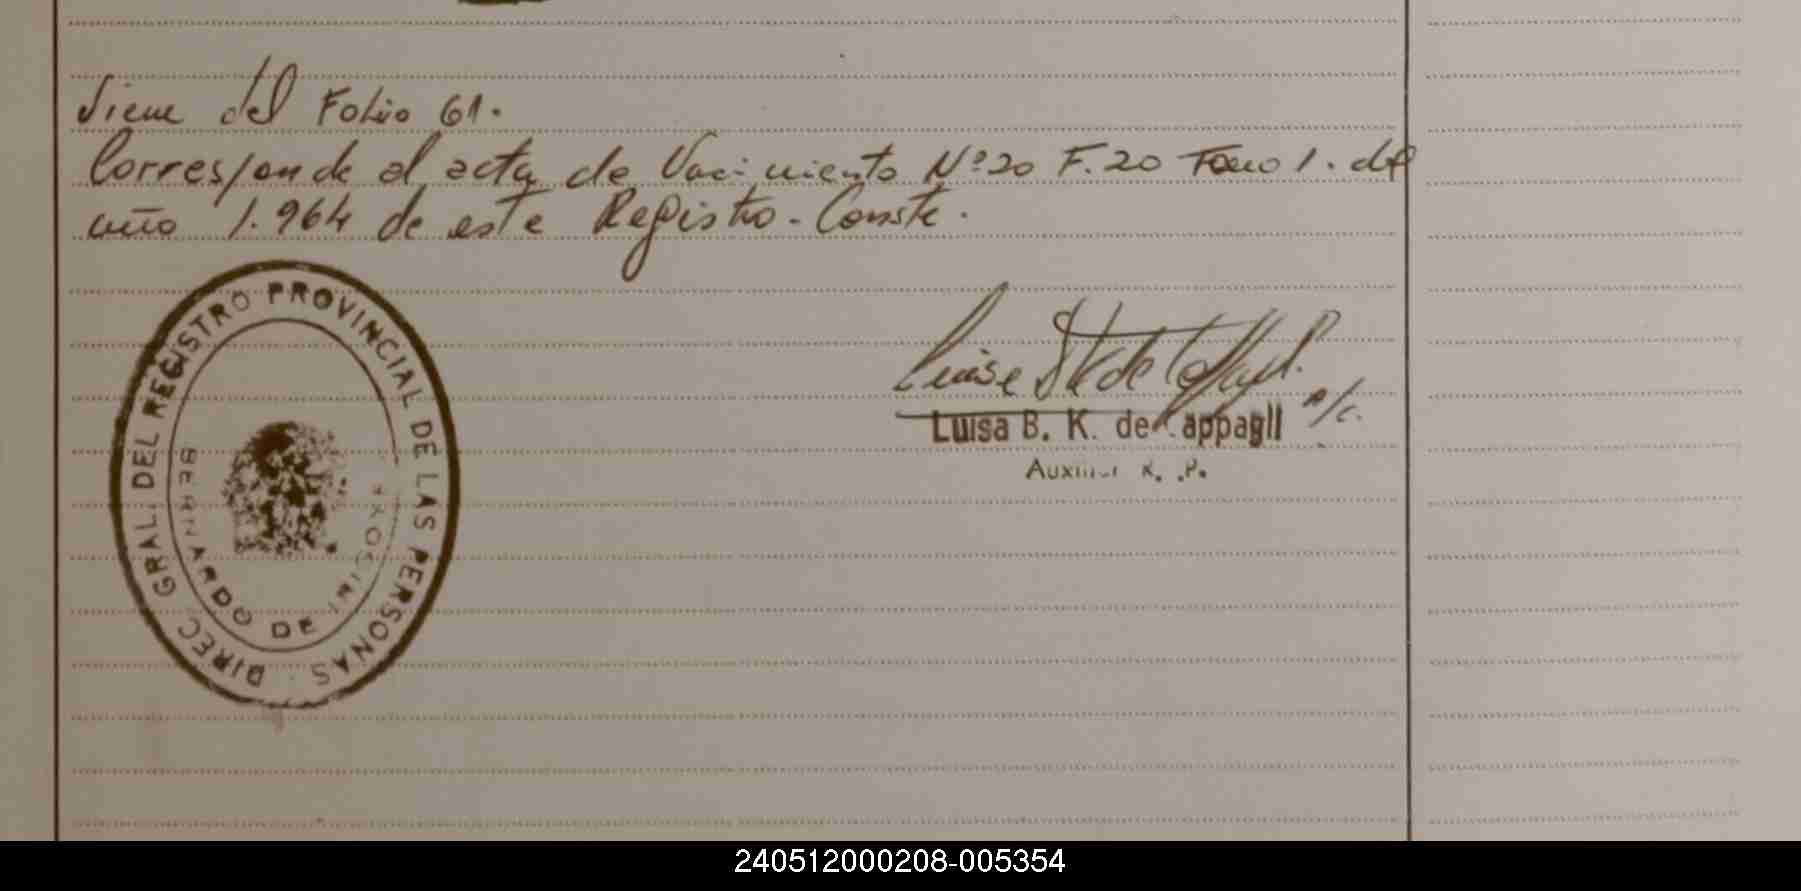 Viene del Folio 61.
Corresponde al acta de Nacimiento Nº20 F.20 Tomo 1. del
año 1.964 de este Registro - Conste.
DIREC. GRAL. DEL REGISTRO PROVINCIAL DE LAS PERSONAS
BERNARDO DE IRIGOYEN
Luisa B. K. de Cappagli
p/c.
Auxiliar R. P.
240512000208-005354